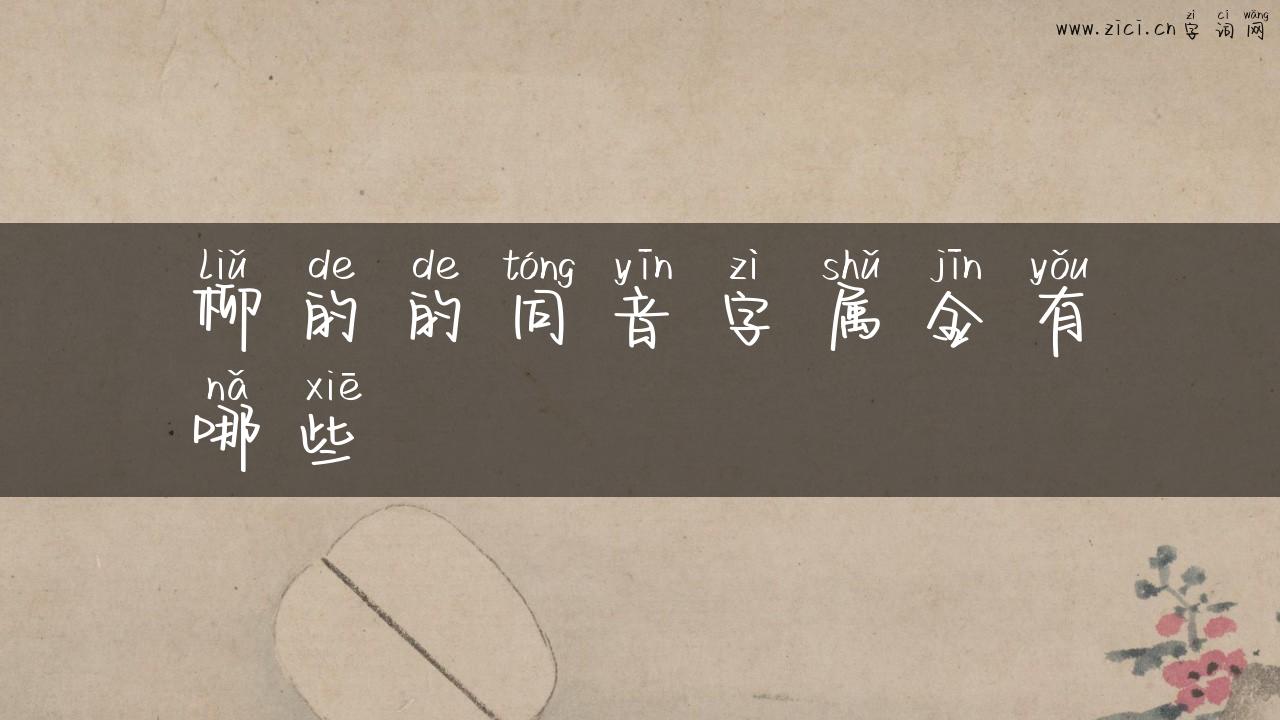 zì cí wǎng
www.zici.cn字词网
liǔ de de tóng yīn zì shǔ jīn yǒu
柳的的同音字属金有
nǎ xiē
哪些